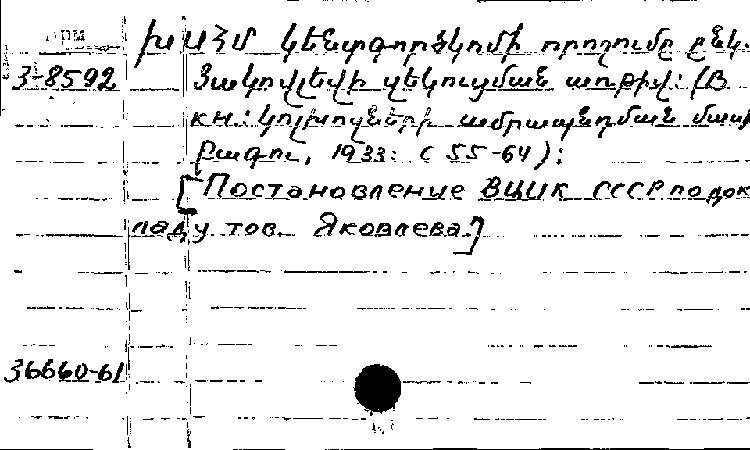 Арм
ԽՍՀՄ կենտգործկոմի որոշումը ընկ.
3-8592 Յակովլեվի զեկուցման առթիվ: (В
кн.: Կոլխոզների ամրապնդման մասի
Բագու, 1933: (55-64):
[Постановление ВЦИК СССР по док
ладу тов. Яковлева.]
36660-61